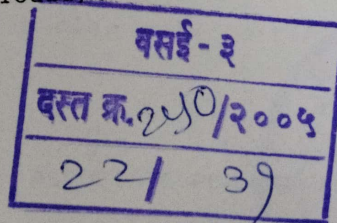 वसई - ३
दस्त क्र. २५०/२००५
२२/ ३१